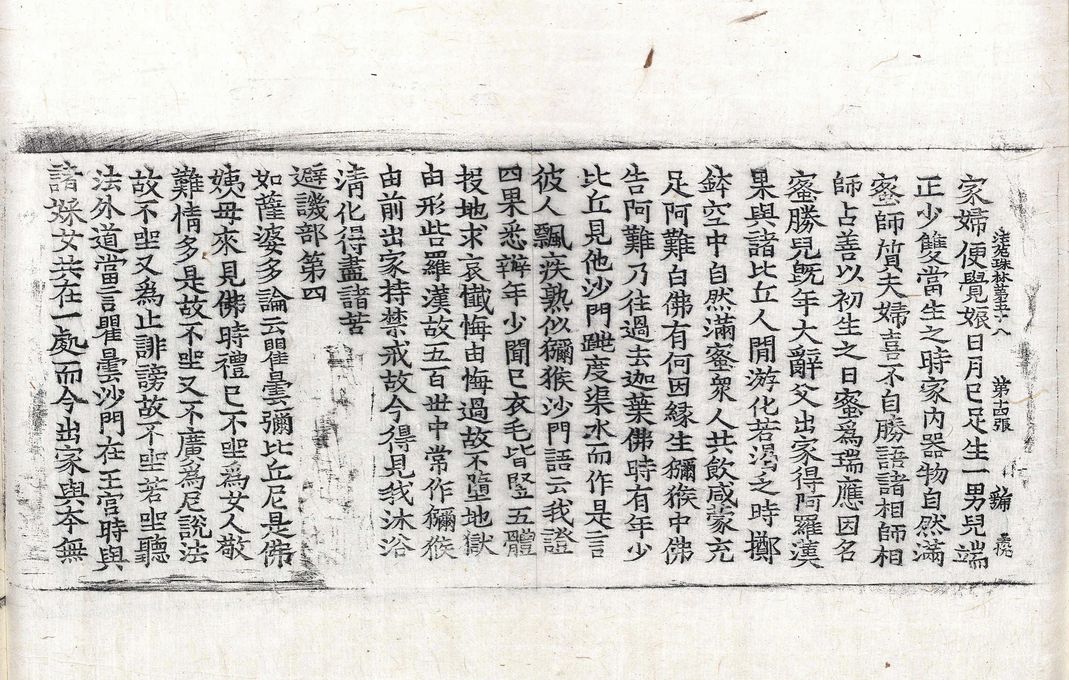 家婦便覺娠日月已足生一男兒端
法苑珠林第五十八 第十四張
正少雙當生之時家內器物自然滿
蜜師質夫婦喜不自勝語諸相師相
師占善以初生之日蜜爲瑞應因名
蜜勝兒旣年大辭父出家得阿羅漢
果與諸比丘人閒游化若渴之時擲
鉢空中自然滿蜜衆人共飮咸蒙充
足阿難白佛有何因緣生獼猴中佛
告阿難乃往過去迦葉佛時有年少
比丘見他沙門跳度渠水而作是言
彼人飄疾熟似獼猴沙門語云我證
四果悉辯年少聞已衣毛皆豎五體
投地求哀懺悔由悔過故不墮地獄
由形呰羅漢故五百世中常作獼猴
由前出家持禁戒故今得見我沐浴
淸化得盡諸苦
避譏部第四
如薩婆多論云瞿曇彌比丘尼是佛
姨母來見佛時禮已不坐爲女人敬
難情多是故不坐又不廣爲尼說法
故不坐又爲止誹謗故不坐若坐聽
法外道當言瞿曇沙門在王宮時與
諸婇女共在一處而今出家與本無